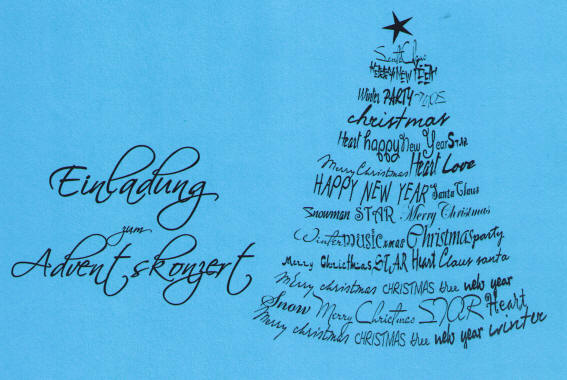 Einladung
zum
Adventskonzert
Santa Claus
HAPPY NEW YEAR
Winter PARTY
christmas
Heart happy New Year STAR
Merry Christmas Heart Love
HAPPY NEW YEAR Santa Claus
Snowman STAR Merry Christmas
Winter music xmas Christmas party
Merry Christmas STAR Heart Claus santa
Merry christmas CHRISTMAS tree new year
Snow Merry Christmas STAR Heart
Merry christmas CHRISTMAS tree new year winter